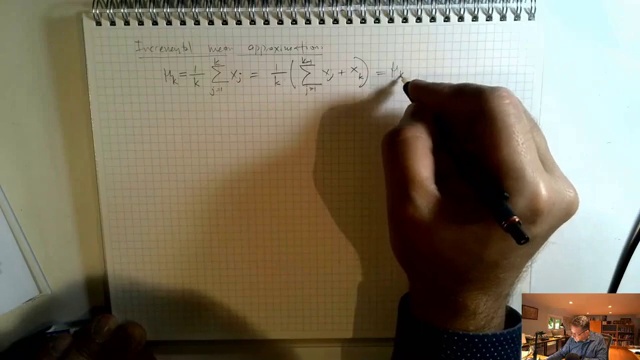 Incremental mean approximation:
μ_k = 1/k ∑_{j=1}^{k} x_j = 1/k ( ∑_{j=1}^{k-1} x_j + x_k ) = μ_k